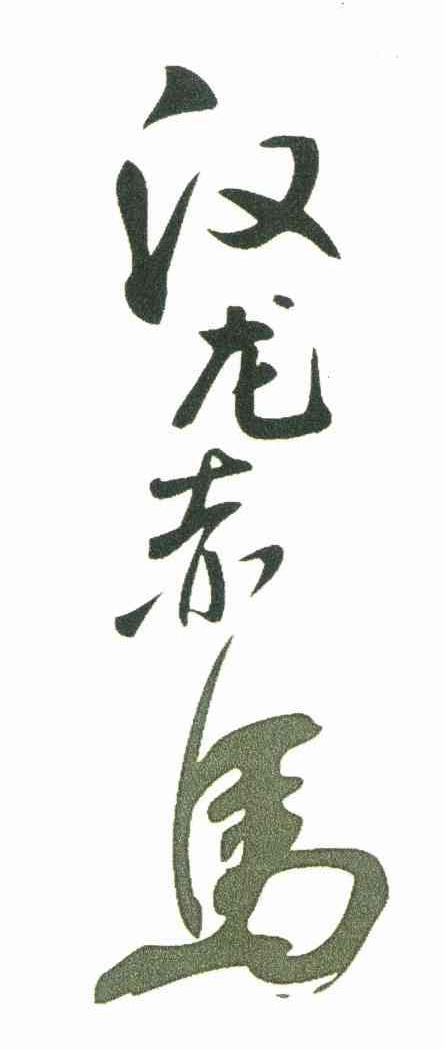 汉龙赤馬